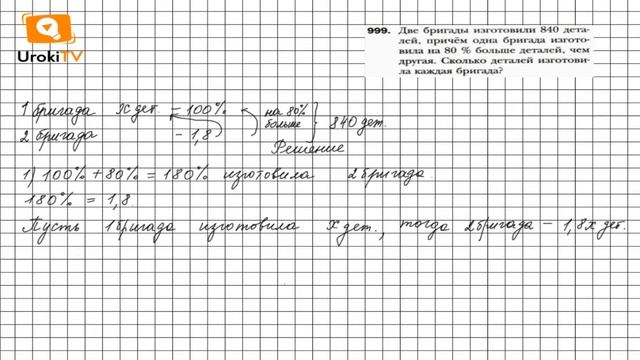 UrokiTV
999. Две бригады изготовили 840 дета-
лей, причём одна бригада изгото-
вила на 80 % больше деталей, чем
другая. Сколько деталей изготови-
ла каждая бригада?
1 бригада x дет. - 100% на 80% больше 840 дет.
2 бригада - 1,8
Решение
1) 100% + 80% = 180% изготовила 2 бригада
180% = 1,8
Пусть 1 бригада изготовила x дет., тогда 2 бригада - 1,8x дет.